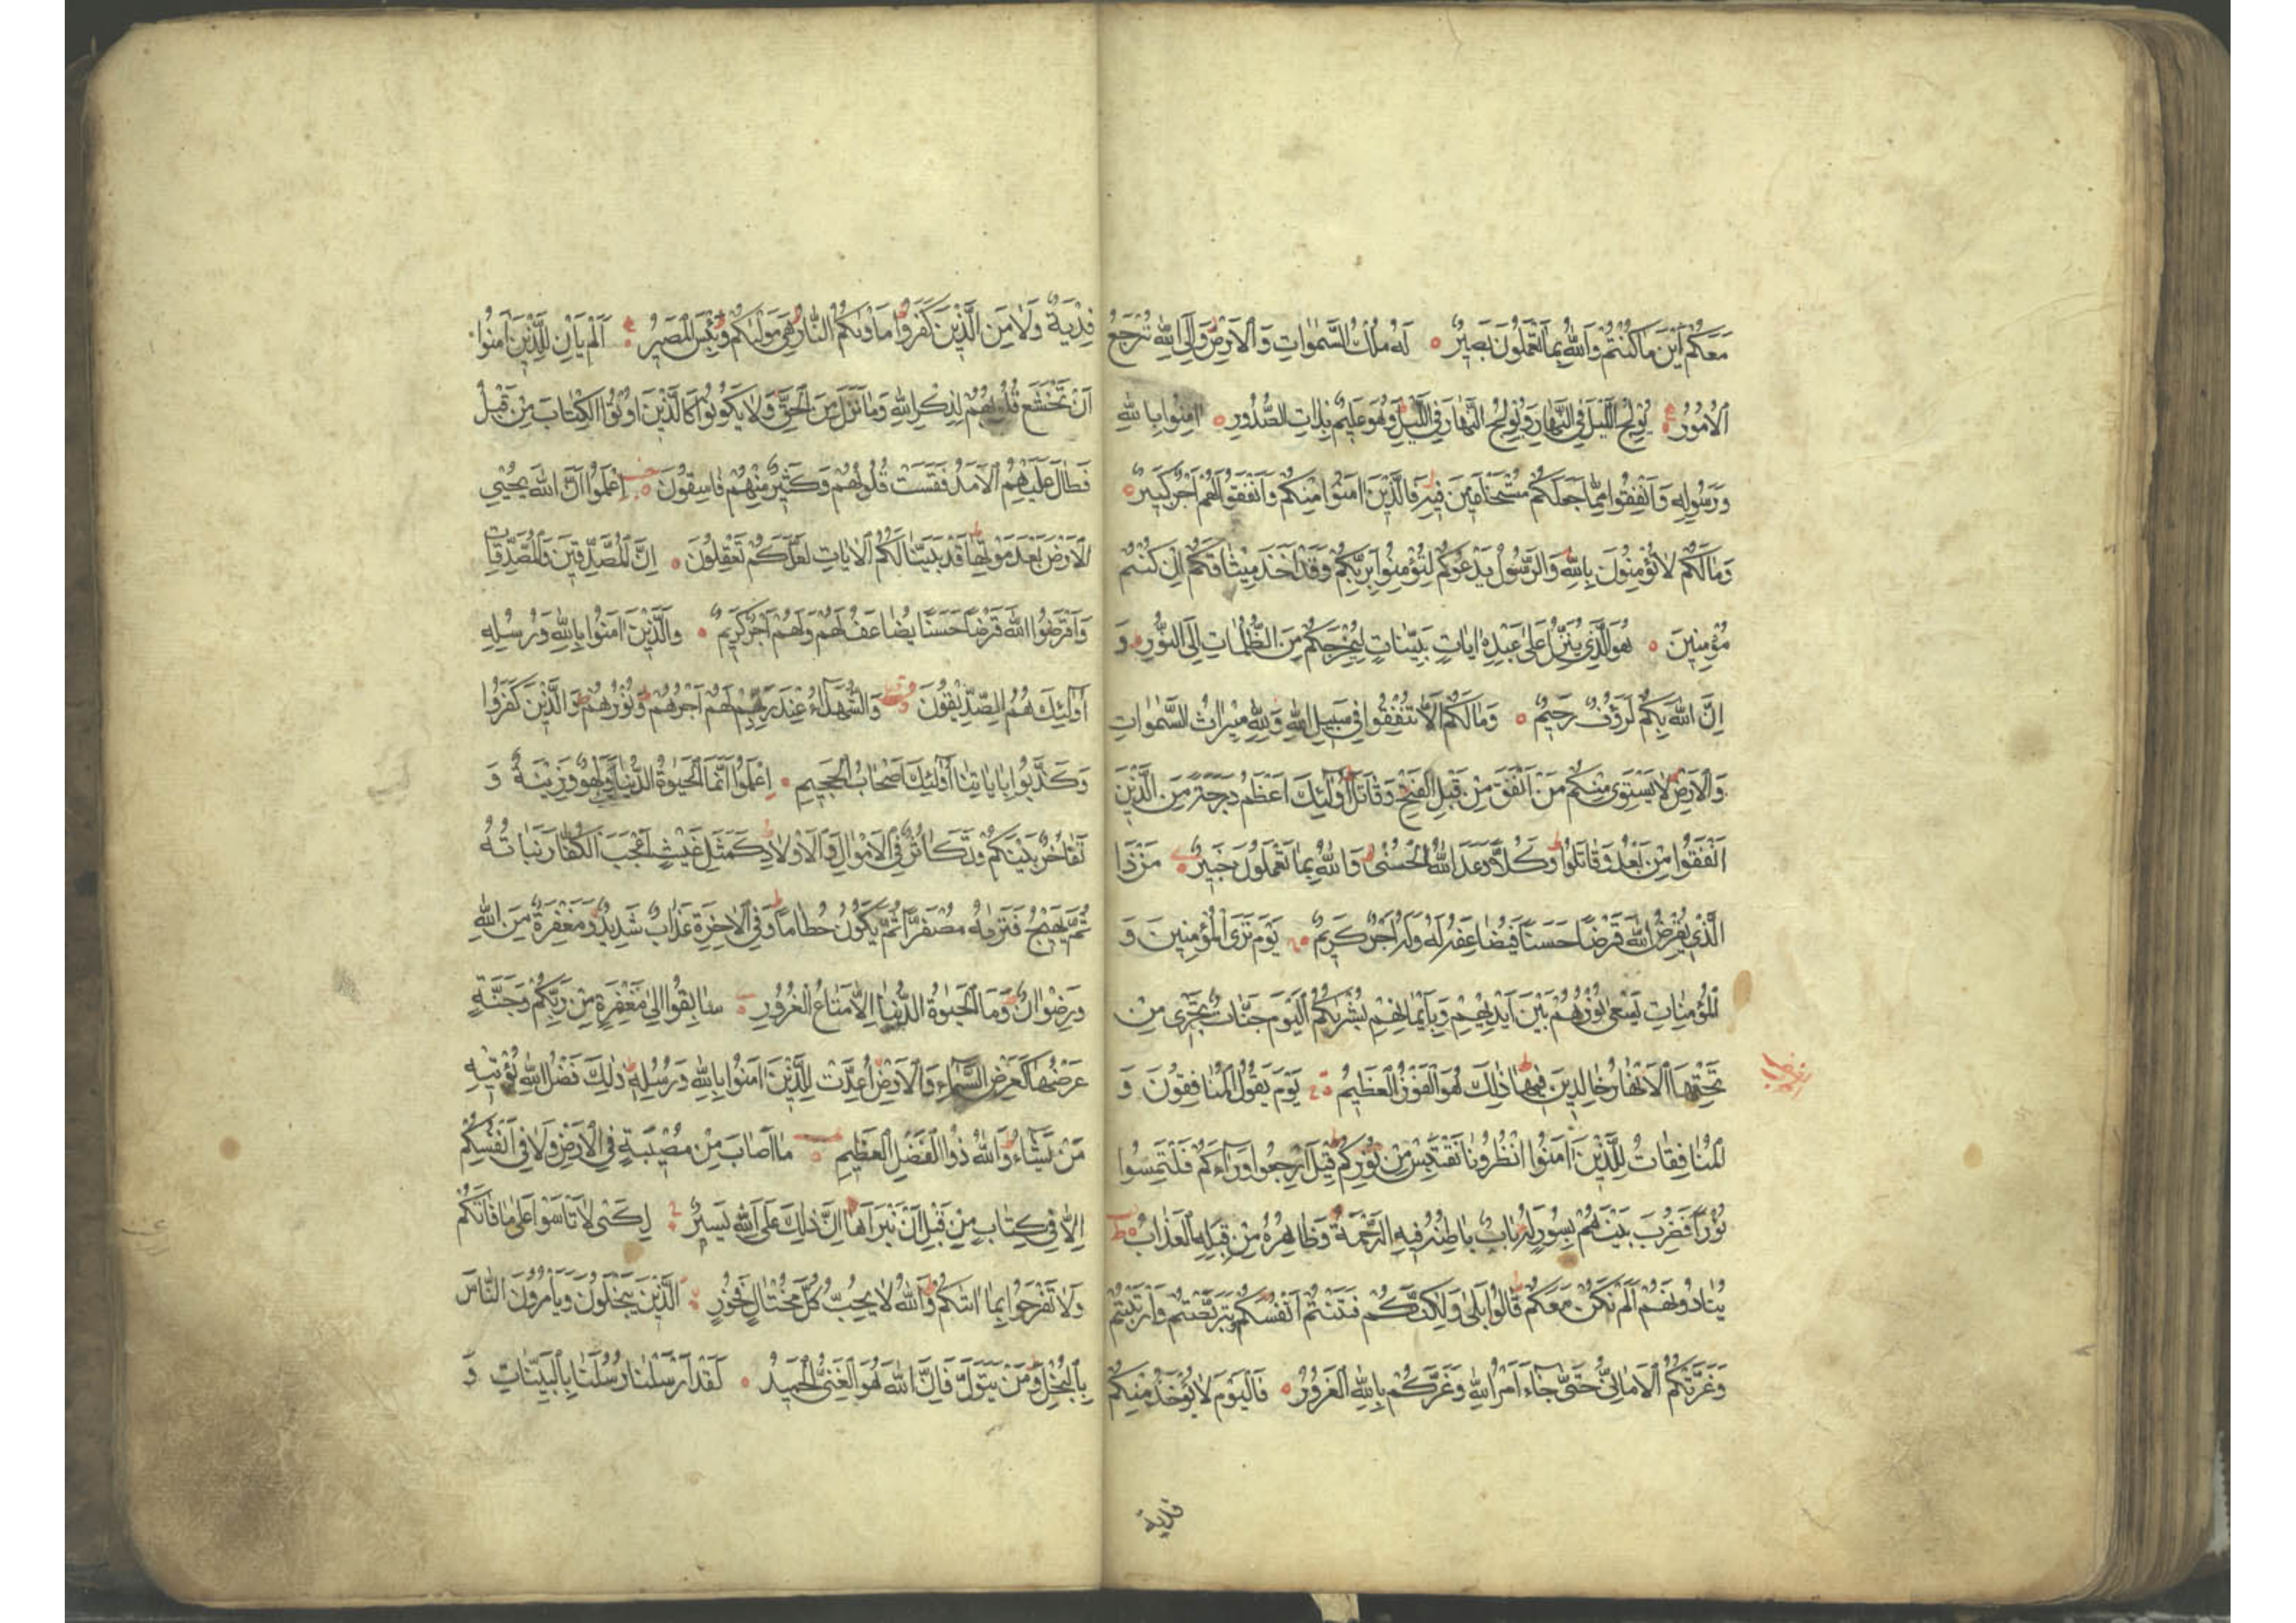 مَعَكُمْ أَيْنَ مَا كُنْتُمْ وَاللّٰهُ بِمَا تَعْمَلُونَ بَصِيرٌ ۝ لَهُ مُلْكُ السَّمٰوَاتِ وَالْاَرْضِ وَاِلَى اللّٰهِ تُرْجَعُ
الْاُمُورُ ۝ يُولِجُ اللَّيْلَ فِي النَّهَارِ وَيُولِجُ النَّهَارَ فِي اللَّيْلِ وَهُوَ عَلِيمٌ بِذَاتِ الصُّدُورِ ۝ اٰمِنُوا بِاللّٰهِ
وَرَسُولِهِ وَاَنْفِقُوا مِمَّا جَعَلَكُمْ مُسْتَخْلَفِينَ فِيهِ فَالَّذِينَ اٰمَنُوا مِنْكُمْ وَاَنْفَقُوا لَهُمْ اَجْرٌ كَبِيرٌ ۝
وَمَا لَكُمْ لَا تُؤْمِنُونَ بِاللّٰهِ وَالرَّسُولُ يَدْعُوكُمْ لِتُؤْمِنُوا بِرَبِّكُمْ وَقَدْ اَخَذَ مِيثَاقَكُمْ اِنْ كُنْتُمْ
مُؤْمِنِينَ ۝ هُوَ الَّذِي يُنَزِّلُ عَلٰى عَبْدِهِ اٰيَاتٍ بَيِّنَاتٍ لِيُخْرِجَكُمْ مِنَ الظُّلُمَاتِ اِلَى النُّورِ وَ
اِنَّ اللّٰهَ بِكُمْ لَرَؤُفٌ رَحِيمٌ ۝ وَمَا لَكُمْ اَلَّا تُنْفِقُوا فِي سَبِيلِ اللّٰهِ وَلِلّٰهِ مِيرَاثُ السَّمٰوَاتِ
وَالْاَرْضِ لَا يَسْتَوِي مِنْكُمْ مَنْ اَنْفَقَ مِنْ قَبْلِ الْفَتْحِ وَقَاتَلَ اُولٰئِكَ اَعْظَمُ دَرَجَةً مِنَ الَّذِينَ
اَنْفَقُوا مِنْ بَعْدُ وَقَاتَلُوا وَكُلًّا وَعَدَ اللّٰهُ الْحُسْنٰى وَاللّٰهُ بِمَا تَعْمَلُونَ خَبِيرٌ ۝ مَنْ ذَا
الَّذِي يُقْرِضُ اللّٰهَ قَرْضًا حَسَنًا فَيُضَاعِفَهُ لَهُ وَلَهُ اَجْرٌ كَرِيمٌ ۝ يَوْمَ تَرَى الْمُؤْمِنِينَ وَ
الْمُؤْمِنَاتِ يَسْعٰى نُورُهُمْ بَيْنَ اَيْدِيهِمْ وَبِاَيْمَانِهِمْ بُشْرٰيكُمُ الْيَوْمَ جَنَّاتٌ تَجْرِي مِنْ
تَحْتِهَا الْاَنْهَارُ خَالِدِينَ فِيهَا ذٰلِكَ هُوَ الْفَوْزُ الْعَظِيمُ ۝ يَوْمَ يَقُولُ الْمُنَافِقُونَ وَ
الْمُنَافِقَاتُ لِلَّذِينَ اٰمَنُوا انْظُرُونَا نَقْتَبِسْ مِنْ نُورِكُمْ قِيلَ ارْجِعُوا وَرَاءَكُمْ فَالْتَمِسُوا
نُورًا فَضُرِبَ بَيْنَهُمْ بِسُورٍ لَهُ بَابٌ بَاطِنُهُ فِيهِ الرَّحْمَةُ وَظَاهِرُهُ مِنْ قِبَلِهِ الْعَذَابُ ۝
يُنَادُونَهُمْ اَلَمْ نَكُنْ مَعَكُمْ قَالُوا بَلٰى وَلٰكِنَّكُمْ فَتَنْتُمْ اَنْفُسَكُمْ وَتَرَبَّصْتُمْ وَارْتَبْتُمْ
وَغَرَّتْكُمُ الْاَمَانِيُّ حَتّٰى جَاءَ اَمْرُ اللّٰهِ وَغَرَّكُمْ بِاللّٰهِ الْغَرُورُ ۝ فَالْيَوْمَ لَا يُؤْخَذُ مِنْكُمْ
فدية
فِدْيَةٌ وَلَا مِنَ الَّذِينَ كَفَرُوا مَاْوٰيكُمُ النَّارُ هِيَ مَوْلٰيكُمْ وَبِئْسَ الْمَصِيرُ ۝ اَلَمْ يَاْنِ لِلَّذِينَ اٰمَنُوا
اَنْ تَخْشَعَ قُلُوبُهُمْ لِذِكْرِ اللّٰهِ وَمَا نَزَلَ مِنَ الْحَقِّ وَلَا يَكُونُوا كَالَّذِينَ اُوتُوا الْكِتَابَ مِنْ قَبْلُ
فَطَالَ عَلَيْهِمُ الْاَمَدُ فَقَسَتْ قُلُوبُهُمْ وَكَثِيرٌ مِنْهُمْ فَاسِقُونَ ۝ اِعْلَمُوا اَنَّ اللّٰهَ يُحْيِي
الْاَرْضَ بَعْدَ مَوْتِهَا قَدْ بَيَّنَّا لَكُمُ الْاٰيَاتِ لَعَلَّكُمْ تَعْقِلُونَ ۝ اِنَّ الْمُصَّدِّقِينَ وَالْمُصَّدِّقَاتِ
وَاَقْرَضُوا اللّٰهَ قَرْضًا حَسَنًا يُضَاعَفُ لَهُمْ وَلَهُمْ اَجْرٌ كَرِيمٌ ۝ وَالَّذِينَ اٰمَنُوا بِاللّٰهِ وَرُسُلِهِ
اُولٰئِكَ هُمُ الصِّدِّيقُونَ وَالشُّهَدَاءُ عِنْدَ رَبِّهِمْ لَهُمْ اَجْرُهُمْ وَنُورُهُمْ وَالَّذِينَ كَفَرُوا
وَكَذَّبُوا بِاٰيَاتِنَا اُولٰئِكَ اَصْحَابُ الْجَحِيمِ ۝ اِعْلَمُوا اَنَّمَا الْحَيٰوةُ الدُّنْيَا لَعِبٌ وَلَهْوٌ وَزِينَةٌ وَ
تَفَاخُرٌ بَيْنَكُمْ وَتَكَاثُرٌ فِي الْاَمْوَالِ وَالْاَوْلَادِ كَمَثَلِ غَيْثٍ اَعْجَبَ الْكُفَّارَ نَبَاتُهُ
ثُمَّ يَهِيجُ فَتَرٰيهُ مُصْفَرًّا ثُمَّ يَكُونُ حُطَامًا وَفِي الْاٰخِرَةِ عَذَابٌ شَدِيدٌ وَمَغْفِرَةٌ مِنَ اللّٰهِ
وَرِضْوَانٌ وَمَا الْحَيٰوةُ الدُّنْيَا اِلَّا مَتَاعُ الْغُرُورِ ۝ سَابِقُوا اِلٰى مَغْفِرَةٍ مِنْ رَبِّكُمْ وَجَنَّةٍ
عَرْضُهَا كَعَرْضِ السَّمَاءِ وَالْاَرْضِ اُعِدَّتْ لِلَّذِينَ اٰمَنُوا بِاللّٰهِ وَرُسُلِهِ ذٰلِكَ فَضْلُ اللّٰهِ يُؤْتِيهِ
مَنْ يَشَاءُ وَاللّٰهُ ذُو الْفَضْلِ الْعَظِيمِ ۝ مَا اَصَابَ مِنْ مُصِيبَةٍ فِي الْاَرْضِ وَلَا فِي اَنْفُسِكُمْ
اِلَّا فِي كِتَابٍ مِنْ قَبْلِ اَنْ نَبْرَاَهَا اِنَّ ذٰلِكَ عَلَى اللّٰهِ يَسِيرٌ ۝ لِكَيْ لَا تَاْسَوْا عَلٰى مَا فَاتَكُمْ
وَلَا تَفْرَحُوا بِمَا اٰتٰيكُمْ وَاللّٰهُ لَا يُحِبُّ كُلَّ مُخْتَالٍ فَخُورٍ ۝ الَّذِينَ يَبْخَلُونَ وَيَاْمُرُونَ النَّاسَ
بِالْبُخْلِ وَمَنْ يَتَوَلَّ فَاِنَّ اللّٰهَ هُوَ الْغَنِيُّ الْحَمِيدُ ۝ لَقَدْ اَرْسَلْنَا رُسُلَنَا بِالْبَيِّنَاتِ وَ